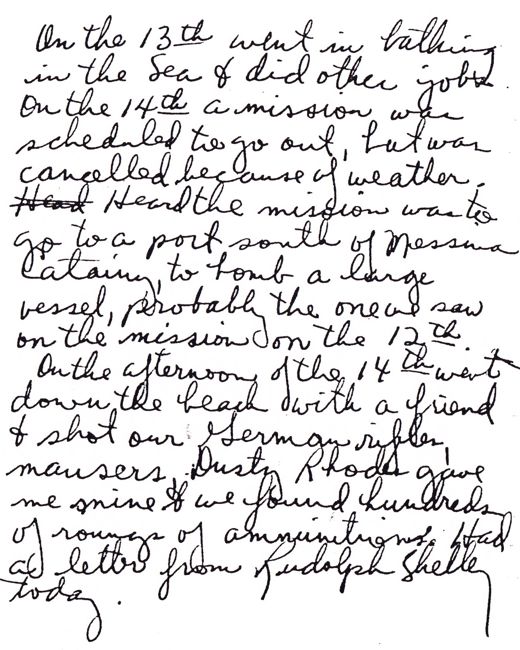 On the 13th went in bathing
in the Sea & did other jobs.
On the 14th a mission was
scheduled to go out, but was
cancelled because of weather.
Head Heard the mission was to
go to a port south of Messina
Catainy, to bomb a large
vessel, probably the one we saw
on the mission on the 12th.
On the afternoon of the 14th went
down the beach with a friend
& shot our German rifles,
mausers. Dusty Rhodes gave
me mine & we found hundreds
of rounds of ammunitions. Had
a letter from Rudolph Shelley
today.